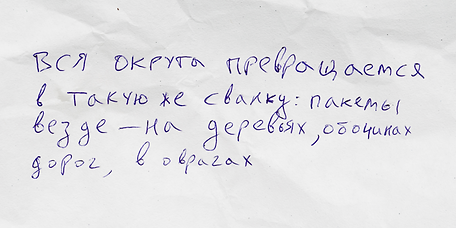 Вся округа превращается
в такую же свалку: пакеты
везде – на деревьях, обочинах
дорог, в оврагах